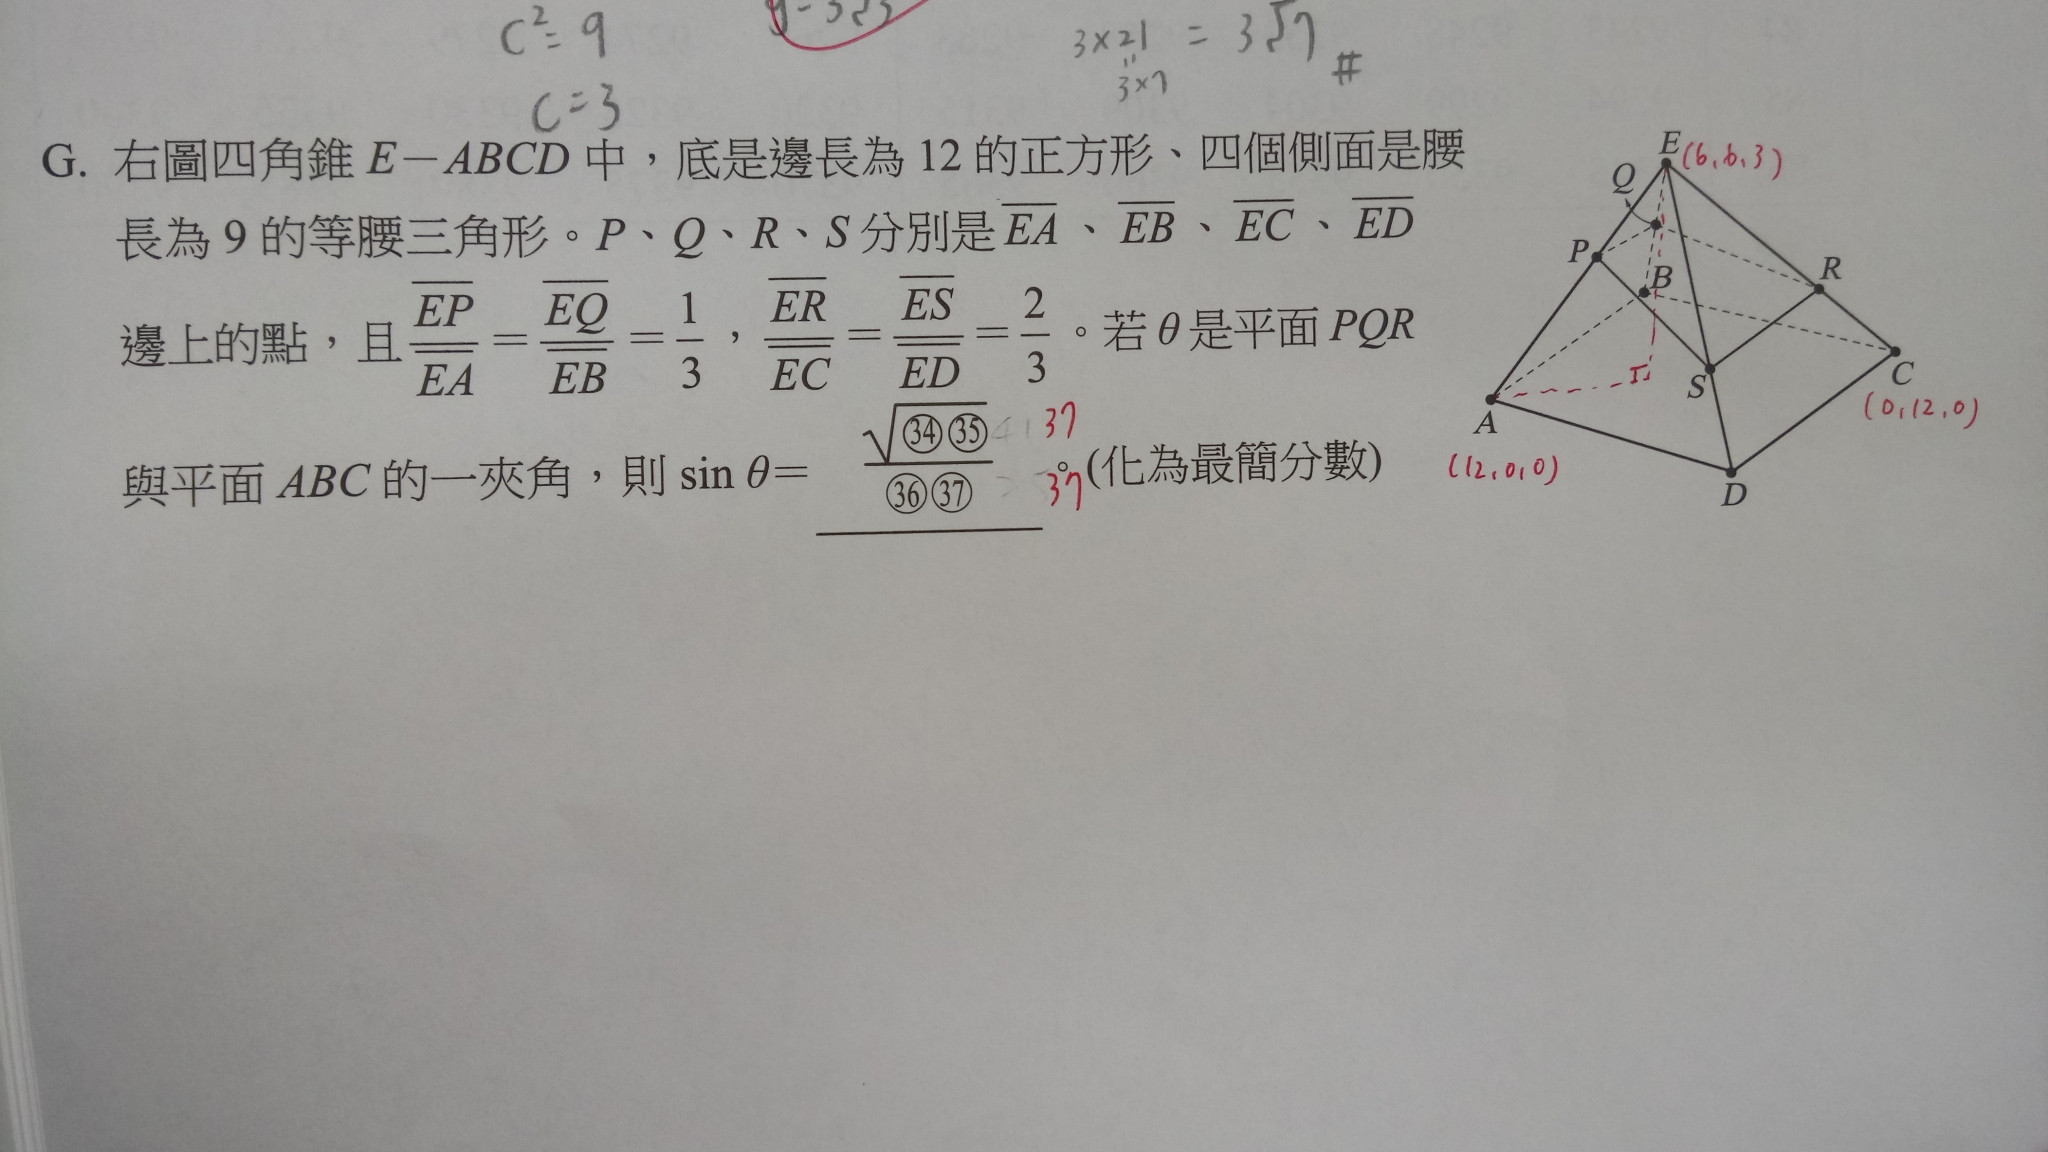 C²=9
y=3√3
3×21 = 3√7 #
"
3×7
C=3
G. 右圖四角錐 E-ABCD 中,底是邊長為 12 的正方形、四個側面是腰
長為 9 的等腰三角形。P、Q、R、S 分別是 EA、EB、EC、ED
邊上的點,且 EP/EA = EQ/EB = 1/3,ER/EC = ES/ED = 2/3。若 θ 是平面 PQR
與平面 ABC 的一夾角,則 sin θ= √㉞㉟/㊱㊲ 。(化為最簡分數)
37
37
E (6,6,3)
Q
P
B
R
S
C
(0,12,0)
A
(12,0,0)
D